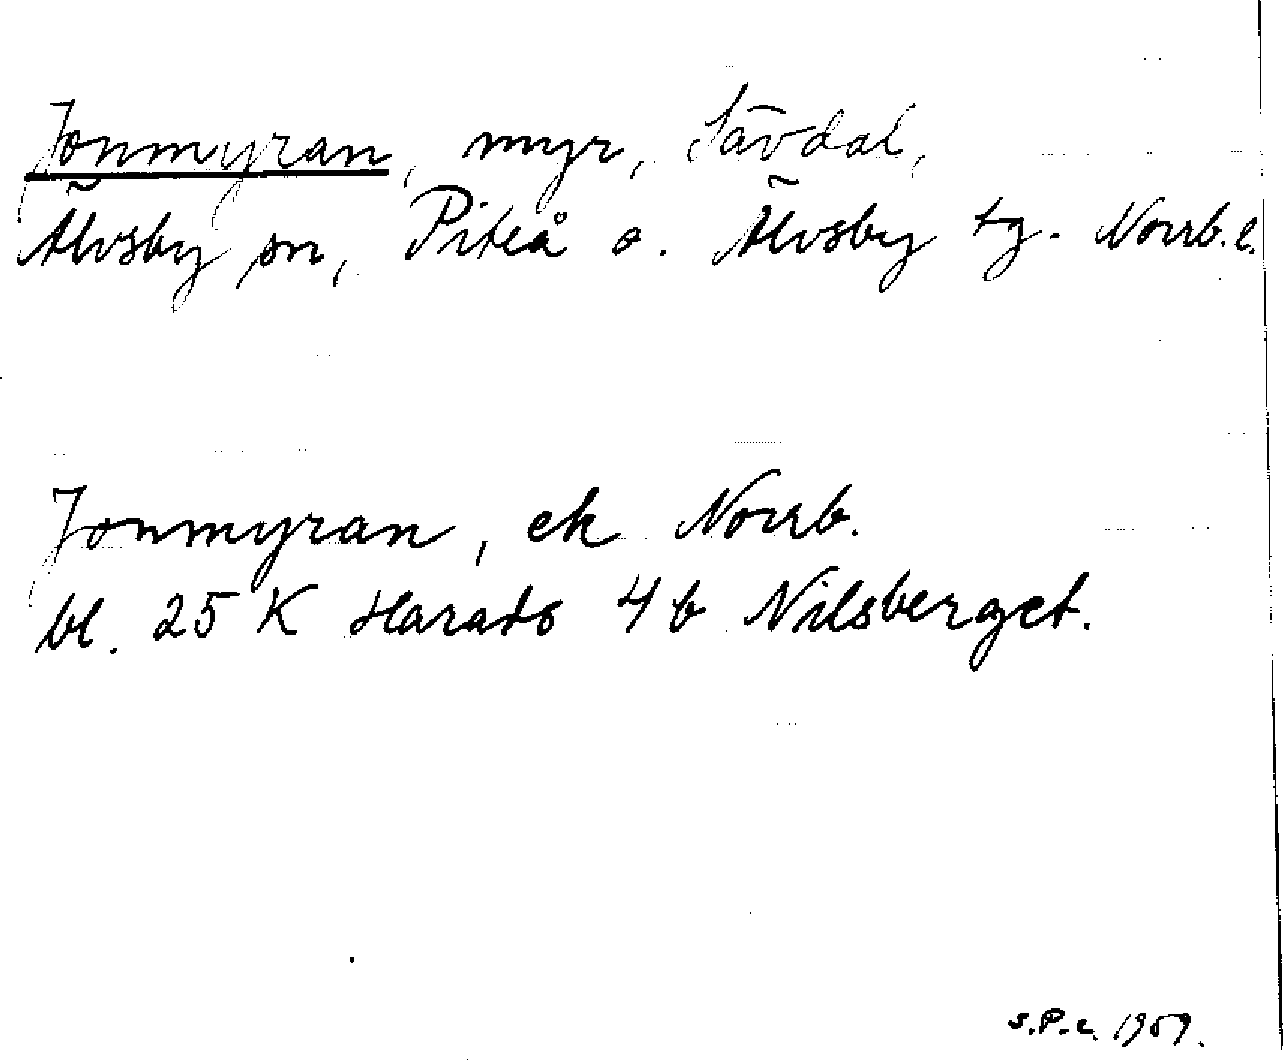 Jonmyran, myr, Sävdal,
Älvsby sn, Piteå o. Älvsby tg. Norrb.l.
Jonmyran, ek Norrb.
bl. 25 K Harads 4 b Nilsberget.
S.P.L. 1959.